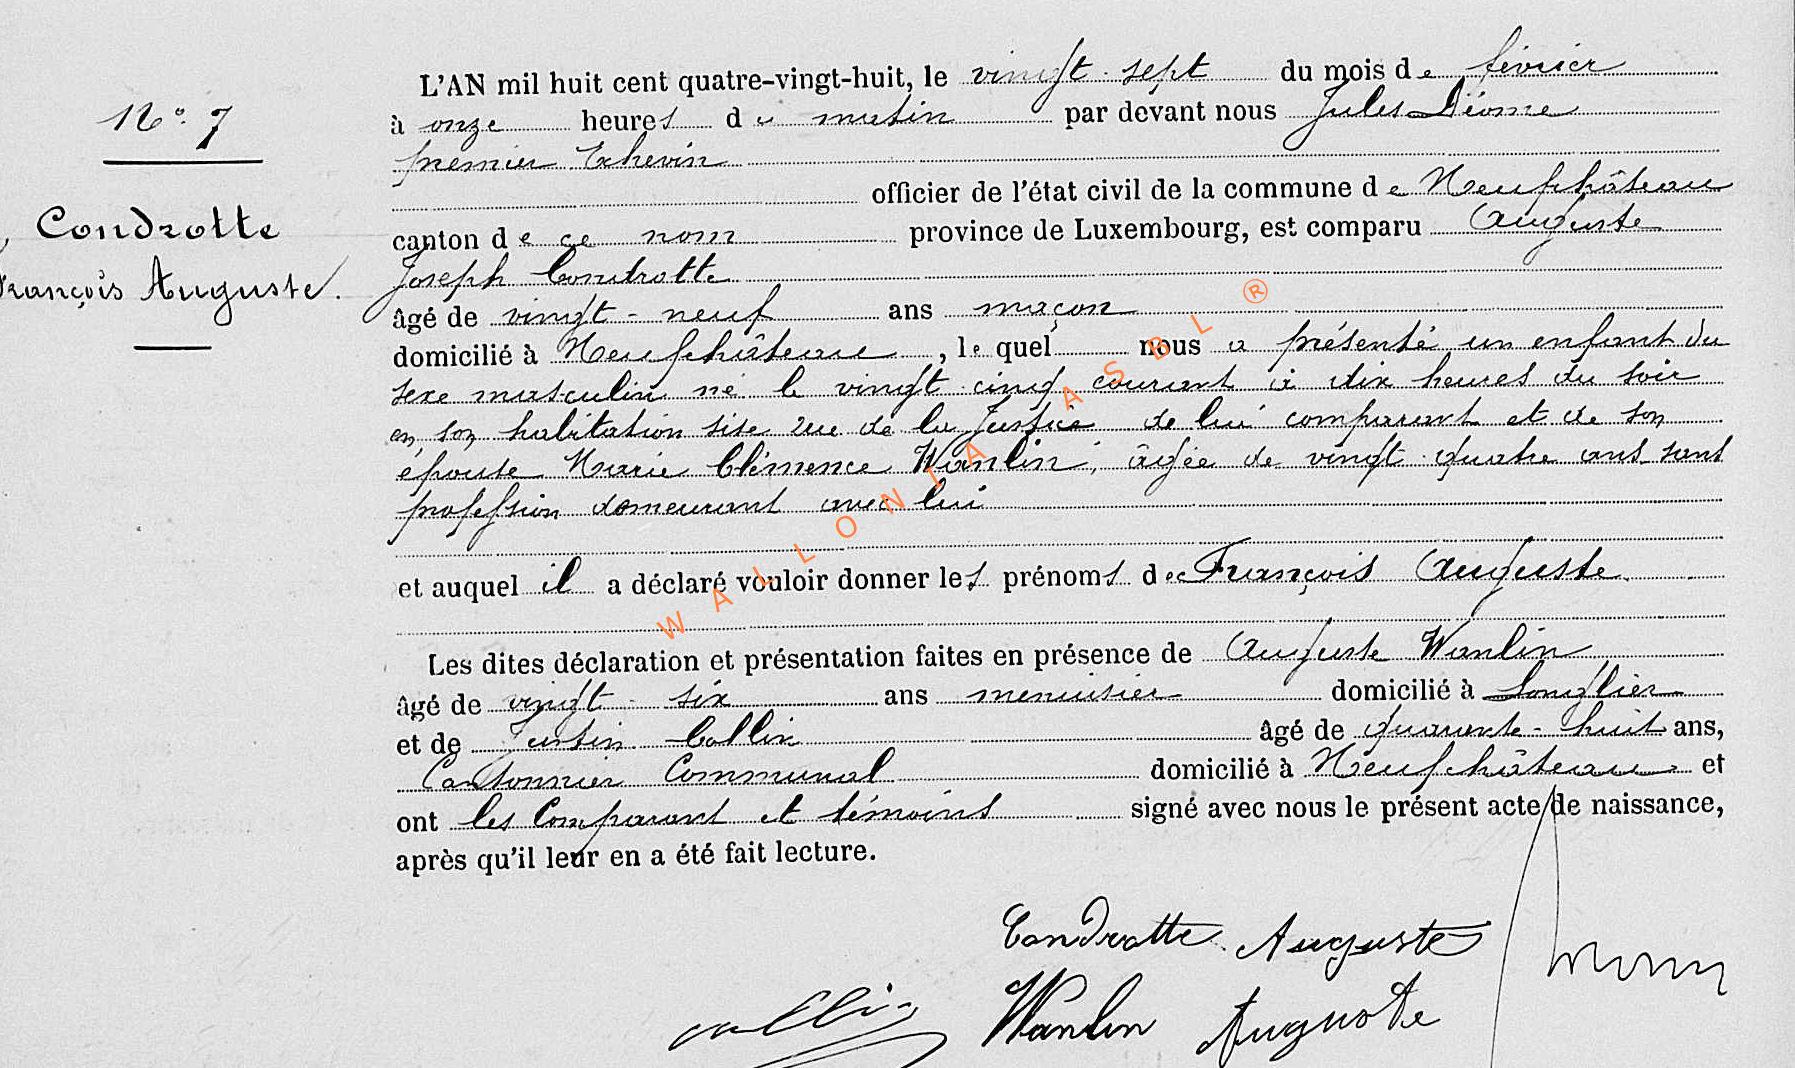 N° 7
Condrotte
François Auguste.
L'AN mil huit cent quatre-vingt-huit, le vingt-sept du mois de février
à onze heures du matin par devant nous Jules
premier Echevin
officier de l'état civil de la commune de Neufchâteau
canton de ce nom province de Luxembourg, est comparu Auguste
Joseph Condrotte
âgé de vingt-neuf ans maçon
domicilié à Neufchâteau, lequel nous a présenté un enfant du
sexe masculin né le vingt-cinq courant à dix heures du soir
en son habitation sise rue de la Justice de lui comparant et de son
épouse Marie Clémence Wanlin, âgée de vingt-quatre ans sans
profession demeurant avec lui
et auquel il a déclaré vouloir donner les prénoms de François Auguste.
Les dites déclaration et présentation faites en présence de Auguste Wanlin,
âgé de vingt-six ans menuisier domicilié à Longlier
et de Justin Collin âgé de quarante-huit ans,
Cantonnier Communal domicilié à Neufchâteau et
ont les Comparant et témoins signé avec nous le présent acte de naissance,
après qu'il leur en a été fait lecture.
Condrotte Auguste
Collin Wanlin Auguste
WALLONIA ASBL ®